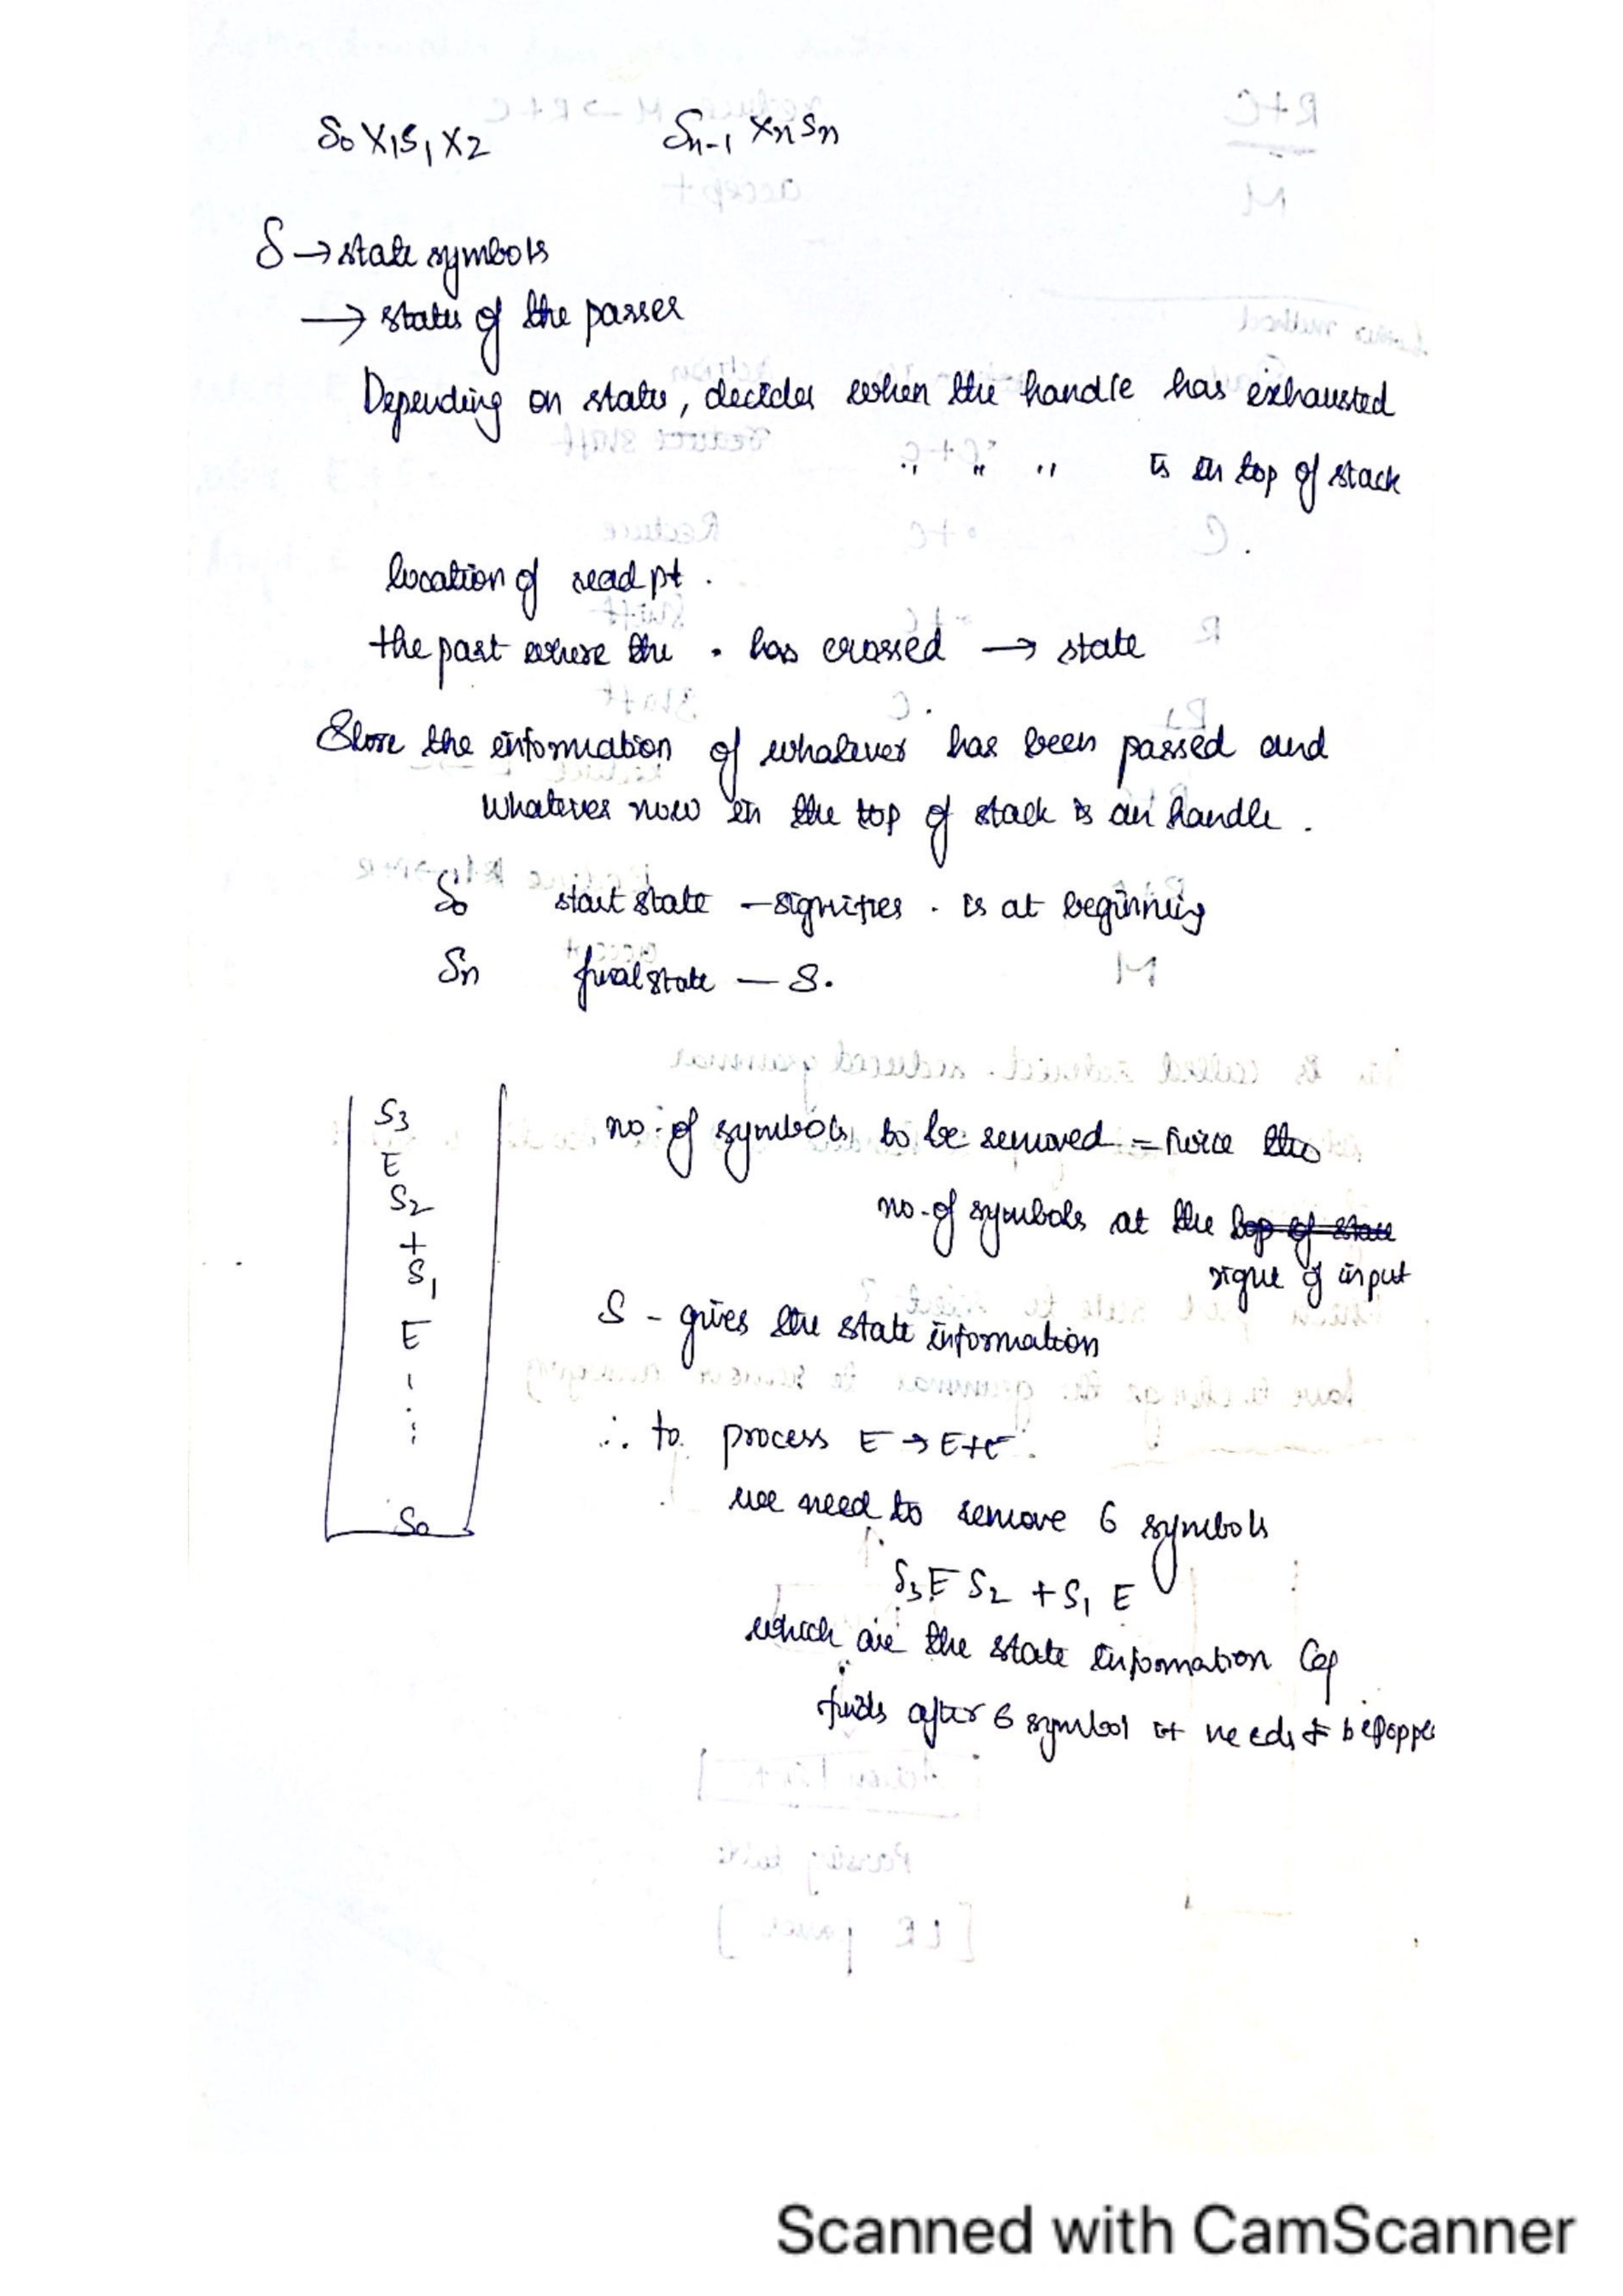 S0 X1 S1 X2 Sn-1 Xn Sn
S → state symbols
→ states of the passer
Depending on state, decides when the handle has exhausted
" " " is in top of stack
location of read pt.
the part where the . has crossed → state
Store the information of whatever has been passed and
whatever now in the top of stack is an handle.
S0 start state - signifies . is at beginning
Sn final state - S.
S3
E
S2
+
S1
E
S0
no. of symbols to be removed = twice the
no. of symbols at the top of stack
of input
S - gives the state information
∴ to process E → E+E
we need to remove 6 symbols
S3 E S2 + S1 E
which are the state information
finds after 6 symbol it needs to be popped
Scanned with CamScanner